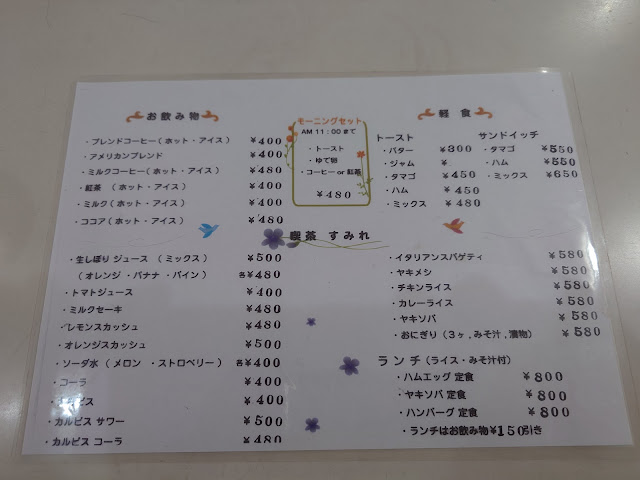 お飲み物
・ブレンドコーヒー(ホット・アイス) ¥400
・アメリカンブレンド ¥400
・ミルクコーヒー(ホット・アイス) ¥480
・紅茶 (ホット・アイス) ¥400
・ミルク(ホット・アイス) ¥400
・ココア(ホット・アイス) ¥480
モーニングセット
AM 11:00まで
・トースト
・ゆで卵
・コーヒー or 紅茶
¥480
軽食
トースト
・バター ¥300
・ジャム ¥
・タマゴ ¥450
・ハム ¥450
・ミックス ¥480
サンドイッチ
・タマゴ ¥550
・ハム ¥550
・ミックス ¥650
喫茶 すみれ
・生しぼり ジュース (ミックス) ¥500
(オレンジ・バナナ・パイン) 各¥480
・トマトジュース ¥400
・ミルクセーキ ¥480
・レモンスカッシュ ¥480
・オレンジスカッシュ ¥500
・ソーダ水(メロン・ストロベリー) 各¥400
・コーラ ¥400
ピス ¥400
・カルピス サワー ¥500
・カルピス コーラ ¥480
・イタリアンスパゲティ ¥580
・ヤキメシ ¥580
・チキンライス ¥580
・カレーライス ¥580
・ヤキソバ ¥580
・おにぎり(3ヶ,みそ汁,漬物) ¥580
ランチ(ライス・みそ汁付)
・ハムエッグ 定食 ¥800
・ヤキソバ 定食 ¥800
・ハンバーグ 定食 ¥800
・ランチはお飲み物¥150引き